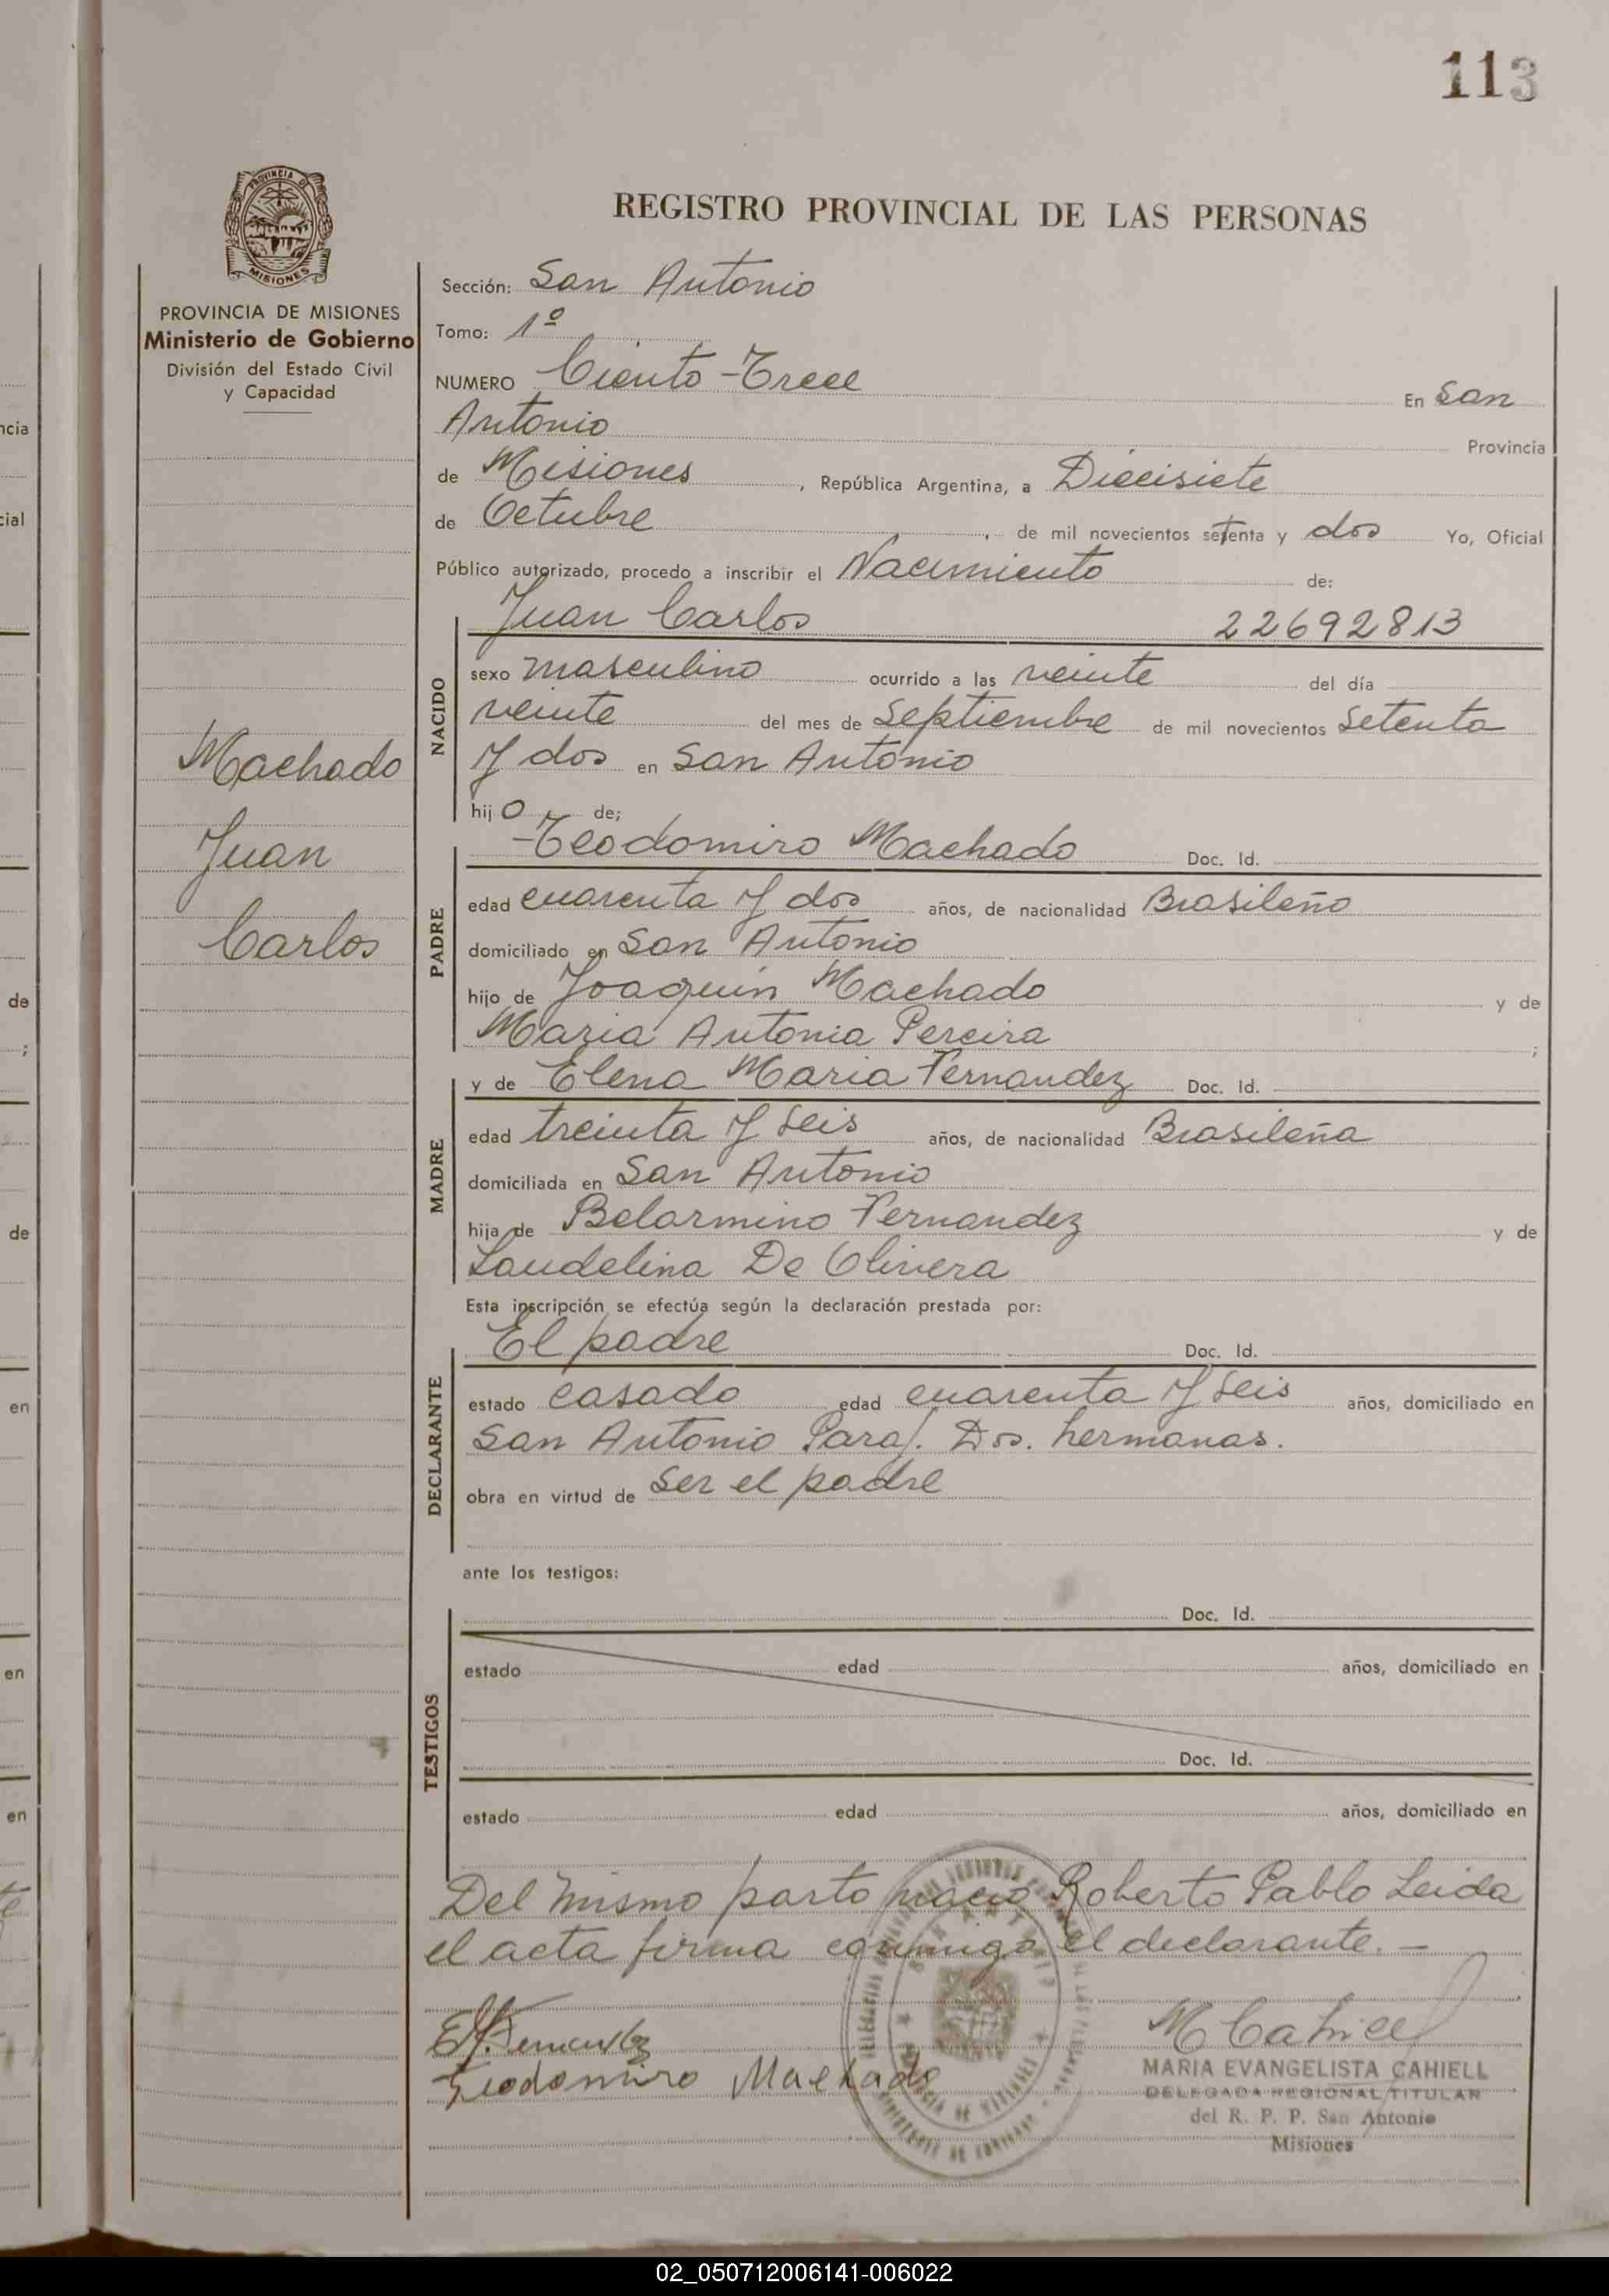 113
REGISTRO PROVINCIAL DE LAS PERSONAS
PROVINCIA DE MISIONES
MISIONES
PROVINCIA DE MISIONES
Ministerio de Gobierno
División del Estado Civil
y Capacidad
Machado
Juan
Carlos
Sección: San Antonio
Tomo: 1º
NUMERO Ciento Trece En San
Antonio Provincia
de Misiones, República Argentina, a Diecisiete
de Octubre, de mil novecientos setenta y dos Yo, Oficial
Público autorizado, procedo a inscribir el Nacimiento de:
NACIDO
Juan Carlos 22692813
sexo masculino ocurrido a las veinte del día
veinte del mes de Septiembre de mil novecientos setenta
y dos en San Antonio
hijo de;
PADRE
Teodomiro Machado Doc. Id.
edad cuarenta y dos años, de nacionalidad Brasileño
domiciliado en San Antonio
hijo de Joaquin Machado y de
Maria Antonia Pereira ;
MADRE
y de Elena Maria Fernandez Doc. Id.
edad treinta y seis años, de nacionalidad Brasileña
domiciliada en San Antonio
hija de Belarmino Fernandez y de
Laudelina De Olivera
Esta inscripción se efectúa según la declaración prestada por:
DECLARANTE
El padre Doc. Id.
estado casado edad cuarenta y seis años, domiciliado en
San Antonio Paraj. Dos. hermanas.
obra en virtud de ser el padre
ante los testigos:
TESTIGOS
Doc. Id.
estado edad años, domiciliado en
Doc. Id.
estado edad años, domiciliado en
Del mismo parto nacio Roberto Pablo Leida
el acta firma conmigo el declarante. -
E M Fernandez
Teodomiro Machado
M Cahiell
MARIA EVANGELISTA CAHIELL
DELEGADA REGIONAL TITULAR
del R. P. P. San Antonio
Misiones
ncia
cial
de
;
de
en
en
en
02_050712006141-006022